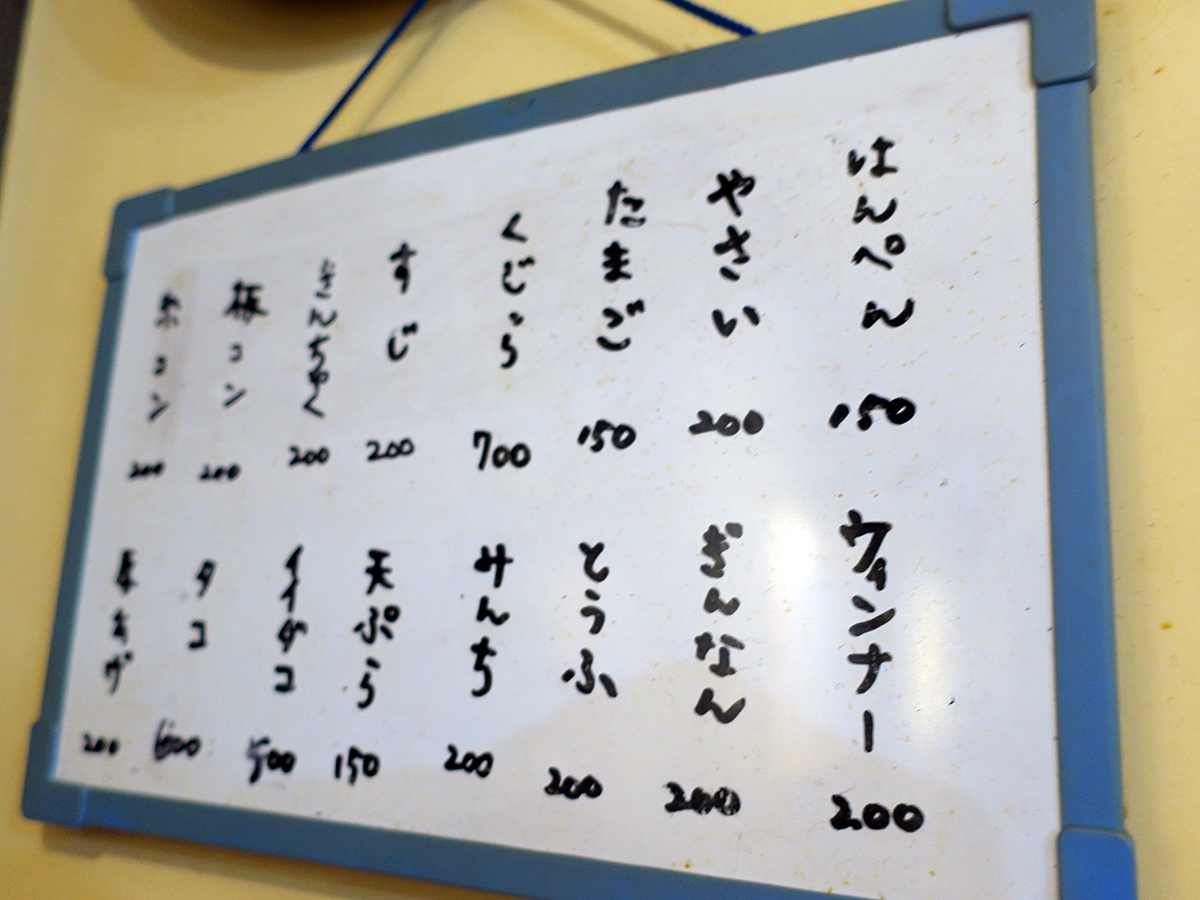 はんぺん 150
やさい 200
たまご 150
くじら 700
すじ 200
きんちゃく 200
板コン 200
糸コン 200
ウィンナー 200
ぎんなん 200
とうふ 200
みんち 200
天ぷら 150
イイダコ 500
タコ 600
200